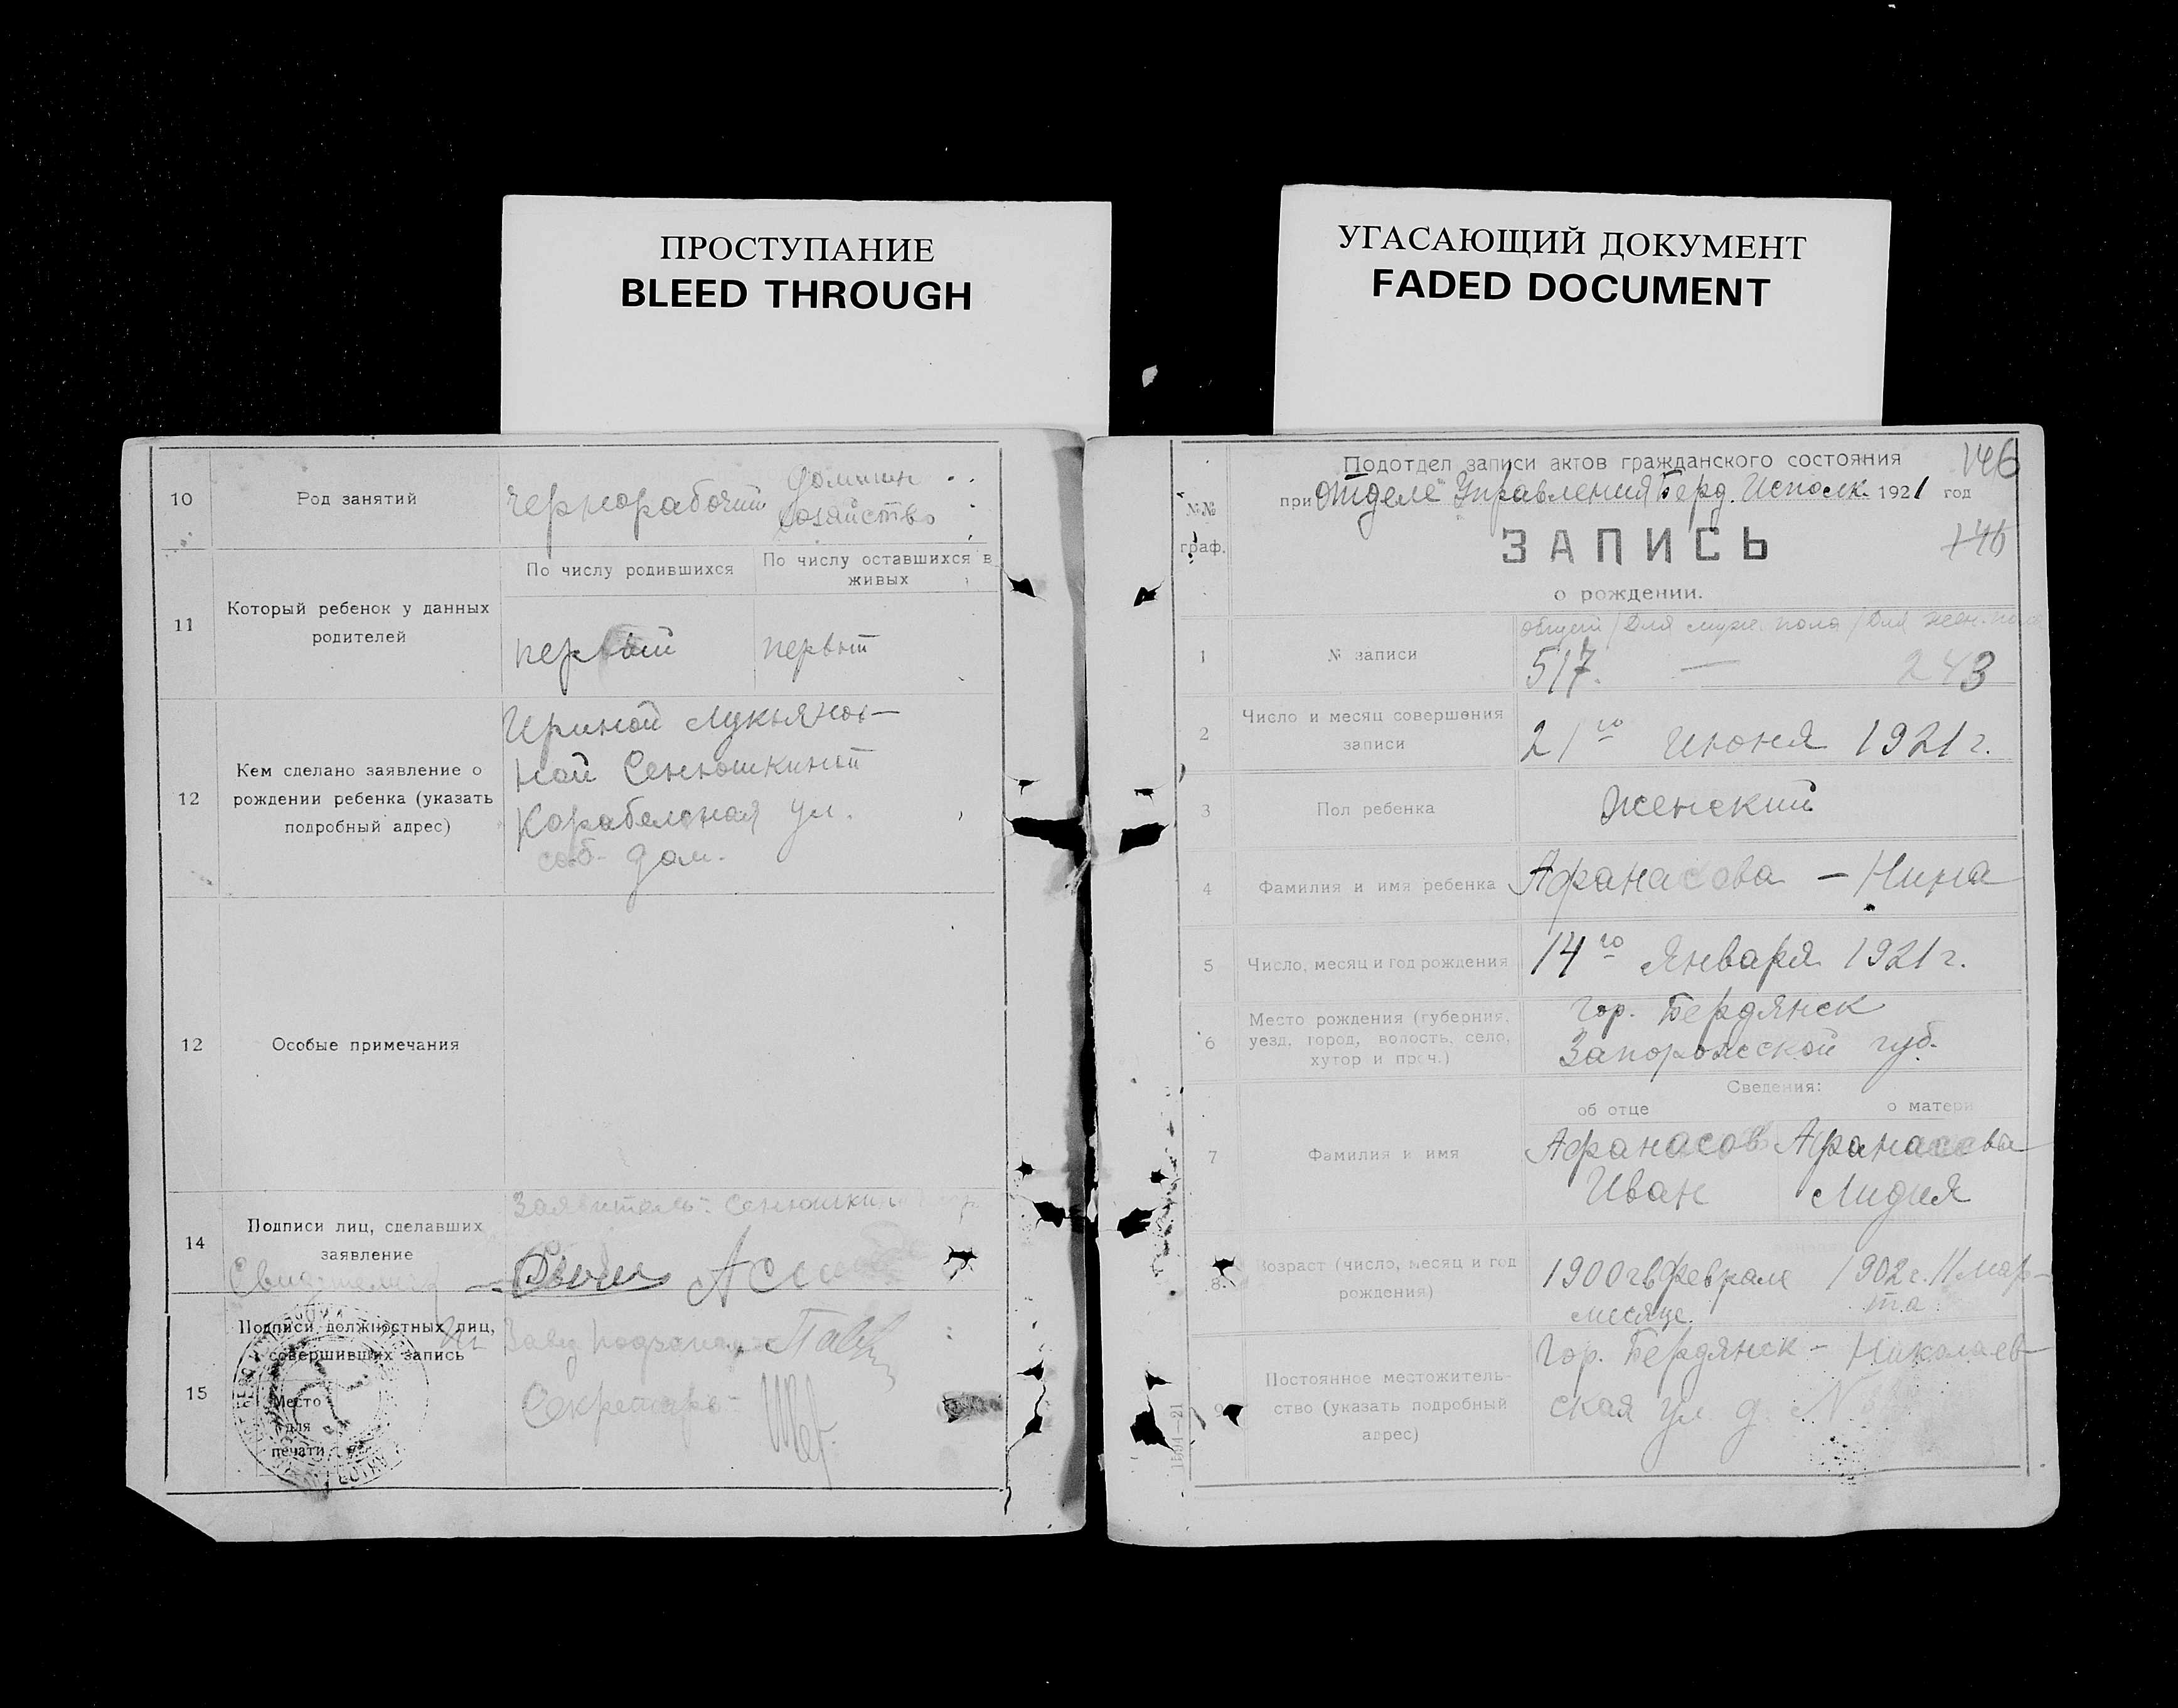 ПРОСТУПАНИЕ
BLEED THROUGH
УГАСАЮЩИЙ ДОКУМЕНТ
FADED DOCUMENT
10
Род занятий
чернорабочий
домашн
хозяйство
11
Который ребенок у данных
родителей
По числу родившихся
По числу оставшихся в
живых
первый
первый
12
Кем сделано заявление о
рождении ребенка (указать
подробный адрес)
Ириной Лукьянов-
ной Сенюшкиной
Корабельная ул.
соб. дом.
12
Особые примечания
14
Подписи лиц, сделавших
заявление
Заявитель: Сенюшкина
Свидетели
15
Подписи должностных лиц,
совершивших запись
Место
для
печати
Завед
Секретарь
Подотдел записи актов гражданского состояния
146
при Отделе Управления Берд. Исполк. 1921 год
№№
граф.
ЗАПИСЬ
146
о рождении.
1
№ записи
общий / Для муж. пола / Для жен. пола
517. — 243
2
Число и месяц совершения
записи
21го Июня 1921 г.
3
Пол ребенка
Женский
4
Фамилия и имя ребенка
Афанасова - Нина
5
Число, месяц и год рождения
14го Января 1921 г.
6
Место рождения (губерния,
уезд, город, волость, село,
хутор и проч.)
гор. Бердянск
Запорожской губ.
Сведения:
об отце
о матери
7
Фамилия и имя
Афанасов
Иван
Афанасова
Лидия
8
Возраст (число, месяц и год
рождения)
1900 г в феврале
месяце
1902 г. 11 мар-
та
9
Постоянное местожитель-
ство (указать подробный
адрес)
гор. Бердянск - Николаев-
ская ул. д. №